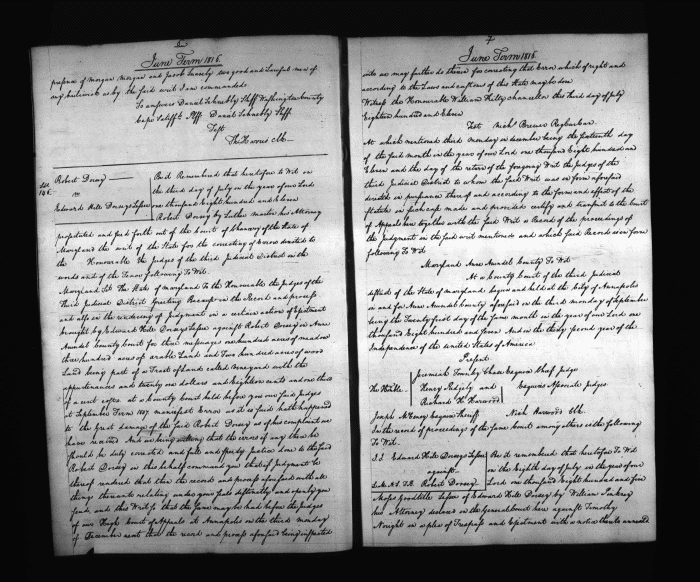 6
June Term 1816
of morgan morgan and Jacob two good and Lawful men of
my bailiwick as by the said writ I am commanded
To answer Daniel Schnebly Shff Washington County
Daniel Schnebly Shff
Test
Tho Harris Clk
Robert Dorsey
vs
Edward Hill Dorseys Lessee
Be it Remembered that heretofore To Wit on
the third day of July in the year of our Lord
one thousand Eight hundred and Eleven
Robert Dorsey by Luther martin his Attorney
prosecuted and sued forth out of the Court of Chancery of the State of
Maryland the writ of the State for the correcting of errors directed to
the Honourable the Judges of the third Judicial District in the
words and of the Tenor following To Wit
Maryland Sct The State of maryland To the Honourable the Judges of the
Third Judicial District Greeting Because in the Record and process
and also in the rendering of Judgment in a certain action of Ejectment
brought by Edward Hill Dorseys Lessee against Robert Dorsey in Anne
Arundel County Court for three messuages one hundred acres of meadow
three hundred acres of arable Land and Two hundred acres of wood
Land being part of a Tract of Land called with the
appurtenances and twenty one dollars and Eighteen cents and one third
of a cent costs at a County Court held before you our said Judges
at September Term 1807 manifest Error as it is said hath happened
to the great damage of the said Robert Dorsey as of his complaint we
have received And we being willing that the errors if any there be
should be duly corrected and full and speedy Justice done to the said
Robert Dorsey in this behalf command you that if Judgment be
thereof rendered that then the record and process aforesaid with all
things thereunto relating under your seals distinctly and openly you
send and this Writ So that the same may be had before the Judges
of our High Court of Appeals at Annapolis on the third monday
of December next that the record and process aforesaid being inspected
7
June Term 1816
we may further do thereon for correcting that Error which of right and
according to the Laws and customs of the State may be done
Witness the Honourable William Kilty Chancellor this third day of July
Eighteen hundred and Eleven
Test Nichs Brewer Reg Cur Can
At which mentioned third monday in december being the sixteenth day
of the said month in the year of our Lord one thousand Eight hundred and
Eleven and the day of the return of the foregoing Writ the Judges of the
third Judicial District to whom the said Writ was in form aforesaid
directed in pursuance thereof and according to the form and effect of the
statute in such case made and provided certify and transmit to the Court
of Appeals here together with the said Writ a Record of the proceedings of
the Judgment in the said writ mentioned and which said Record is in form
following To Wit
Maryland Anne Arundel County To Wit
At a County Court of the third Judicial
District of the State of maryland begun and held at the City of Annapolis
in and for Anne Arundel County aforesaid on the third monday of September
being the Twenty first day of the same month in the year of our Lord one
thousand Eight hundred and seven And in the thirty second year of the
Independence of the united States of America
Present
The Honble
Jeremiah Townley Chase Esquire Chief Judge
Henry Ridgely and
Richard H. Harwood
Esquires Associate Judges
Joseph McCeney Esquire Sheriff Nich Harwood Clk.
In the record of proceedings of the same Court among others is the following
To Wit
Edward Hill Dorseys Lessee
against
Robert Dorsey
Be it remembered that heretofore To Wit
on the Eighth day of July in the year of our
Lord one thousand Eight hundred and five
Lessee of Edward Hill Dorsey by William
his Attorney declared in the General Court here against Timothy
Nought in a plea of Trespass and Ejectment with a notice thereto annexed